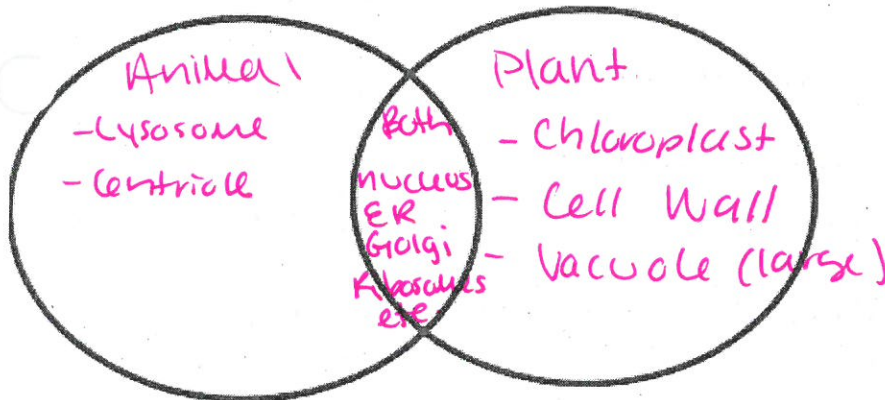 Animal
-Lysosome
-Centriole
Both
nucleus
ER
Golgi
Ribosomes
etc.
Plant
- Chloroplast
- Cell Wall
- Vacuole (large)